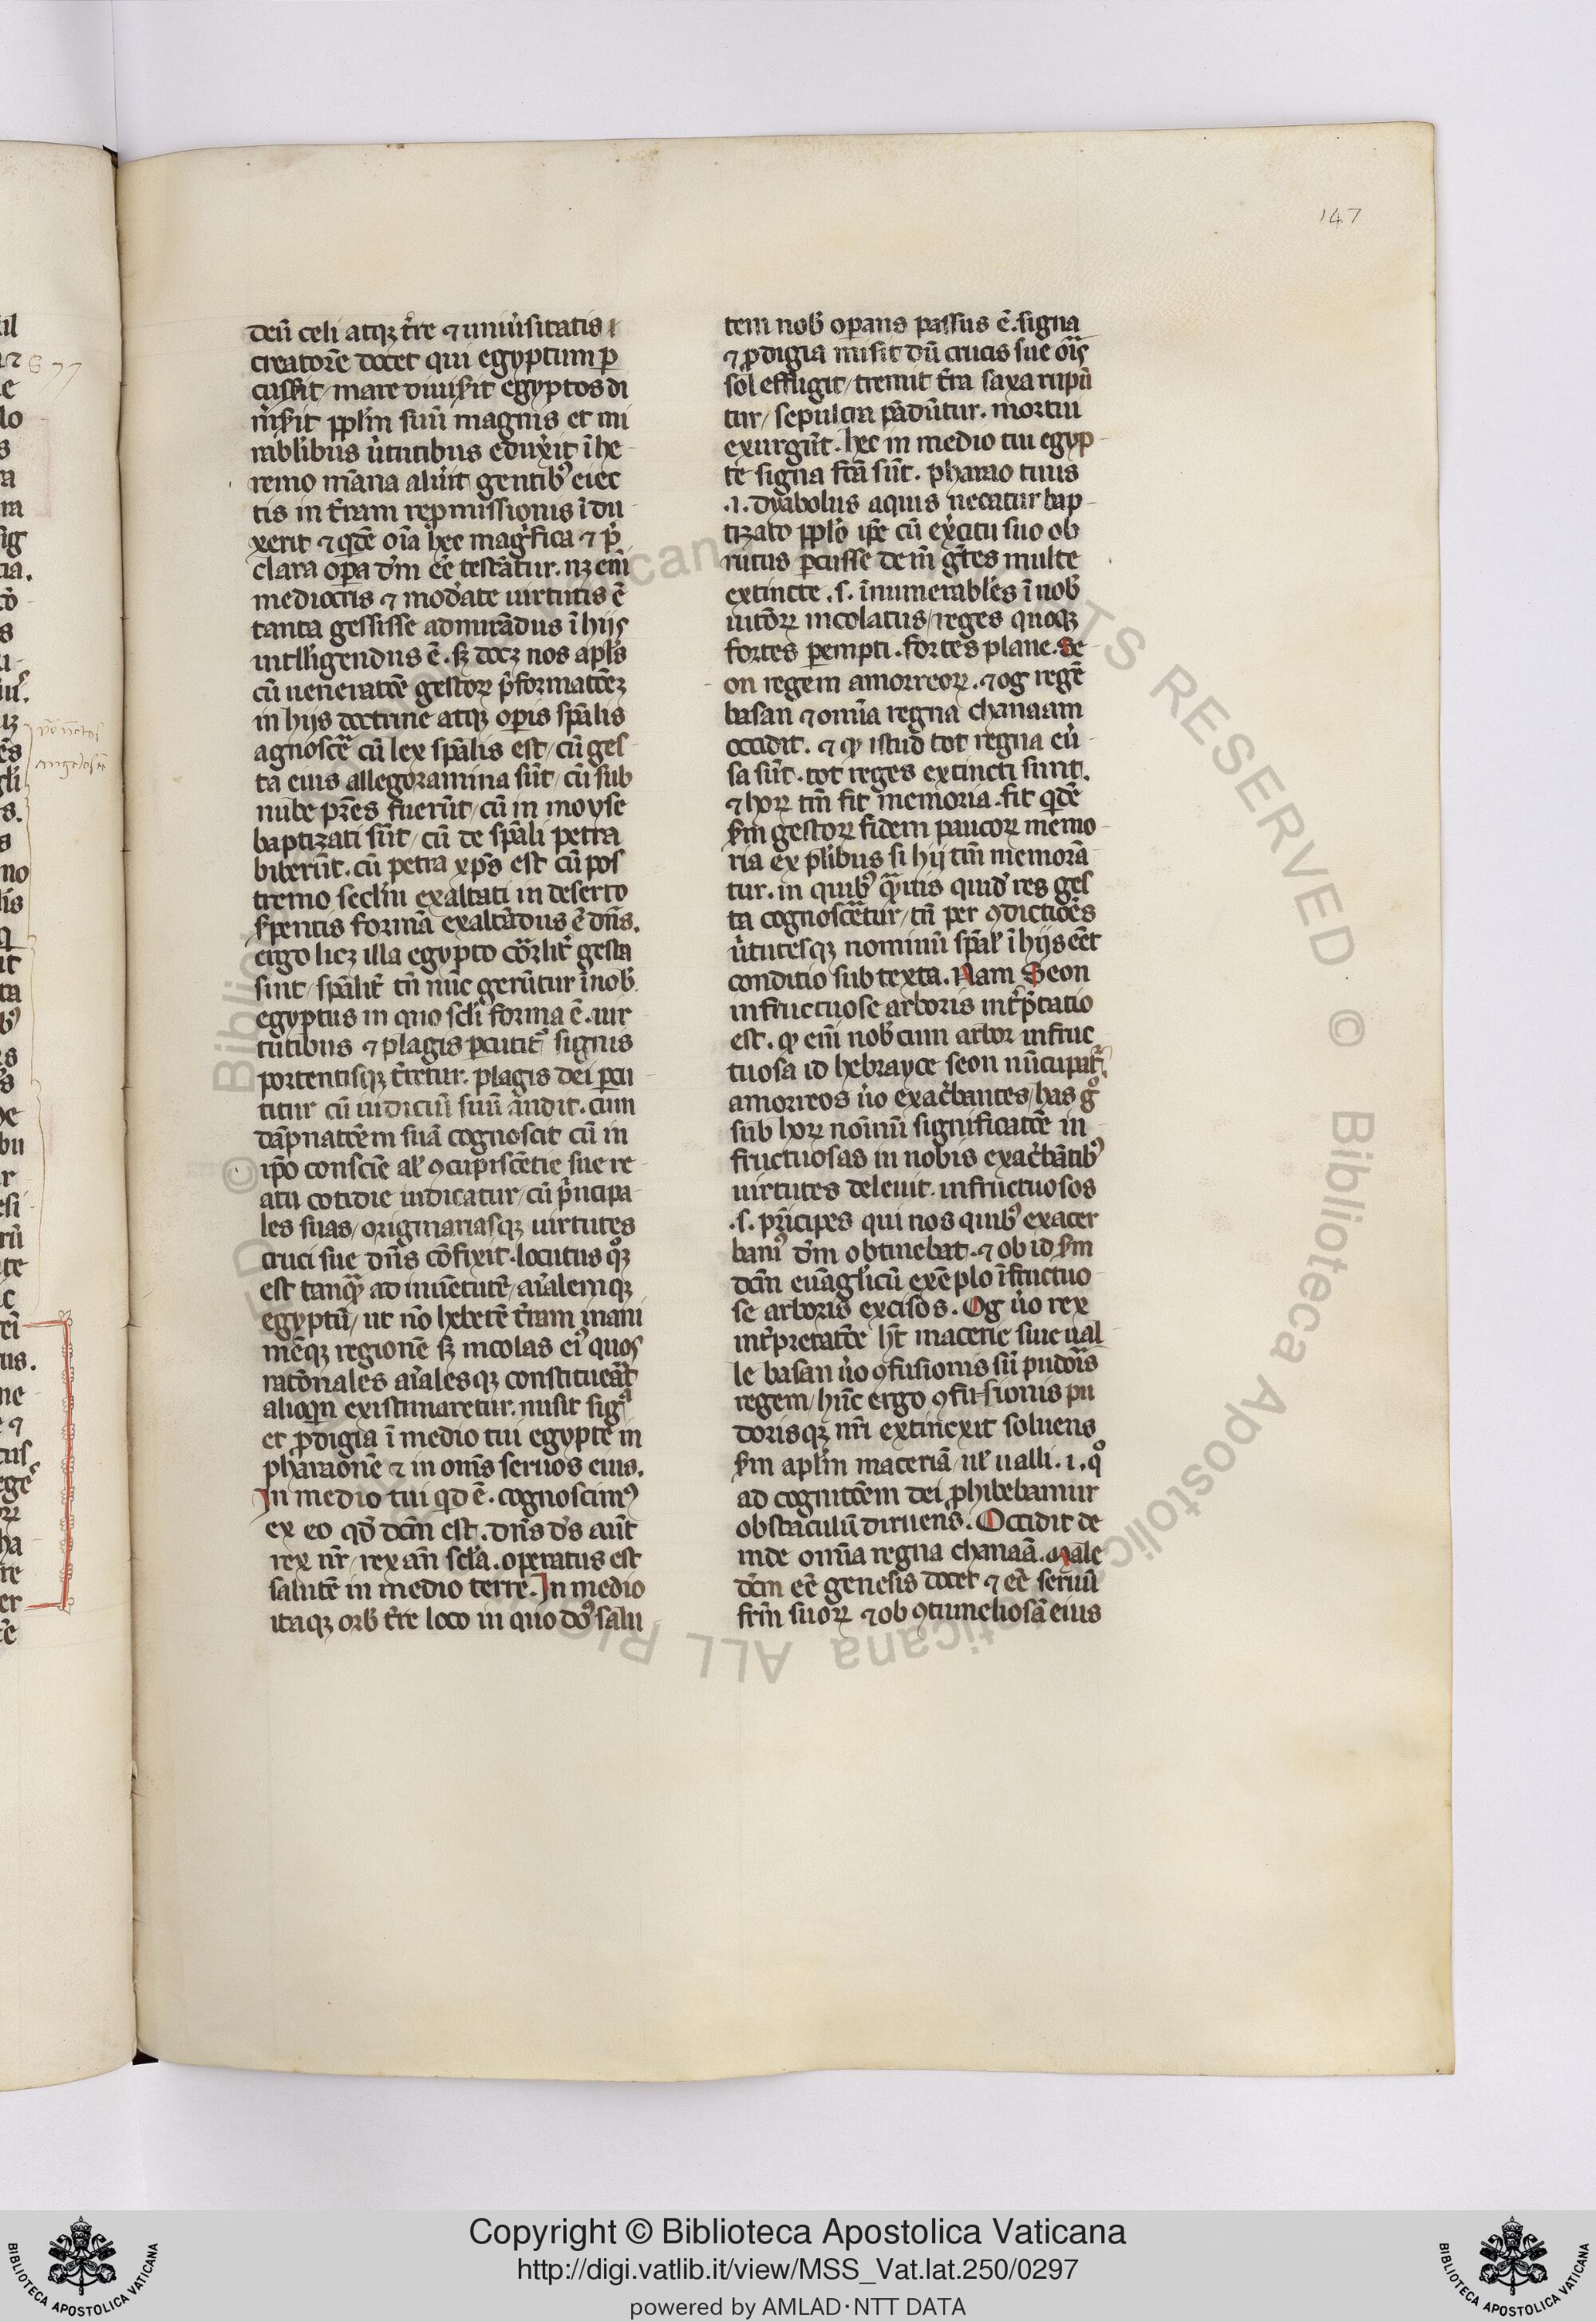 147
deū celi atqꝫ t̄re ⁊ uniu̾sitatis
creatorē docet qui egyptum ꝑ
cussit / mare diuisit egyptos di
m̾sit ppl̄m suū magnis et mi
rabl̓ibus u̾tutibus eduxit ī he
remo māna aluit gentibꝰ eiec
tis in t̄ram repmissionis ī du
xerit ⁊ qdē oīa hec magͥfica ⁊ p̄
clara oꝑa dm̄ eē testātur. nꝫ enī
mediocris ⁊ mod̾ate uirtutis ē
tanta gessisse admirādus ī hijs
intll̓igendus ē. sꝫ docꝫ nos apl̓s
cū ueneratōe gestoꝝ p̄formatōeꝫ
in hijs doctrine atqꝫ oꝑis spālis
agnosce̾ cū lex spālis est / cū ges
ta eius allegoramina sūt / cū sub
nube pr̄es fuerūt / cū in moyse
baptizati sūt / cū de spāli petra
biberūt. cū petra xp̄s est cū pos
tremo secl̓m exaltati in deserto
sꝑentis formā exaltādus ē dn̄s.
ergo licꝫ illa egypto cōꝛꝑlit̾ gesta
sint / spālit̾ tn̄ nūc gerūtur ī nob̾.
egyptus in quo scl̓i forma ē. uir
tutibus ⁊ plagis ꝑcutit᷑ signis
portentisqꝫ t̾retur. plagis dei ꝑcu
titur cū iudiciū suū audit. cum
dāpnatōem suā cognoscit cū in
ip̄o consciē al̓ ꝯcupiscētie sue re
atu cotidie iudicatur / cū p̄ncipa
les suas / originariasqꝫ uirtutes
cruci sue dn̄s cōfixit. locutus qͦꝫ
est tanqᷓ ad inuētutē / aīalemqꝫ
egyptū / ut nō hebetē t̄ram inani
mēqꝫ regionē sꝫ incolas eiꝰ quos
rationales aīalesqꝫ constitueāt̄
alioqn existimaretur. misit sigᷓ
et ꝓdigia ī medio tui egypte in
pharaonē ⁊ in om̄s seruos eius.
In medio tui qd ē. cognoscimꝰ
ex eo qd̓ dcm̄ est. dn̄s ds̄ aut̄
rex nr̄ / rex an̄ scl̓a. operatus est
salutē in medio terre. In medio
itaqꝫ orb̾ t̄re loco in quo dꝰ salu
tem nob̾ operans passus ē. signa
⁊ ꝓdigia misit dū crucis sue oīs
sol effugit / tremit t̄ra saxa rupū
tur / sepulcra pādūtur. mortui
exurgūt. hec in medio tui egyp
te signa fcā sūt. pharao tuus
.i. dyabolus aquis necatur bap
tizato ppl̓o ip̄e cū ex̾citu suo ob
rutus ꝑcusse dem̄ gētes multe
extincte .s. innumerabl̓es ī nob̾
uitioꝝ incolatus / reges quoqꝫ
fortes ꝑempti. fortes plane. Se
on regem amorreoꝝ. ⁊ og regē
basan ⁊ omīa regna chanaam
occidit. ⁊ qꝫ istud tot regna eu̾
sa sūt. tot reges extincti sunt.
⁊ hoꝝ tm̄ fit memoria. fit qdē
sm̄ gestoꝝ fidem paucoꝝ memo
ria ex pl̓ibus si hij tm̄ memorā
tur. in quibꝰ qᷓuis quid̓ res ges
ta cognoscētur / tn̄ per ꝯdictiōes
u̾tutesqꝫ nominū spāl̓ ī hijs eēt
conditio sub texta. Nam Seon
infructuose arboris int̾p̄tatio
est. qꝫ enī nob̾cum arbor infruc
tuosa id hebrayce seon nūcupat᷑.
amorreos u̾o exac̾bantes / has gͦ
sub hoꝝ noīnū significatōe in
fructuosas in nobis exac̾bātibꝰ
uirtutes deleuit. infructuosos
.s. pͥncipes qui nos quibꝰ exacer
bamꝰ dm̄ obtinebat. ⁊ ob id sm̄
dcm̄ euāgl̓icū exēplo īfructuo
se arboris excisos. Og u̾o rex
int̾pretatōe hͭ macerie siue ual
le basan u̾o ꝯfusionis sū pudoris
regem / hūc ergo ꝯfusionis pu
dorisqꝫ nr̄i extincxit soluens
sm̄ apl̓m maceriā ul̓ ualli .i. qͦ
ad cognitōem dei ꝓhibebamur
obstaculū diruens. Occidit de
inde omīa regna chanaā. Male
dcm̄ eē genesis docet ⁊ eē seruū
frm̄ suoꝝ ⁊ ob ꝯtumeliosā eius
Copyright © Biblioteca Apostolica Vaticana
http://digi.vatlib.it/view/MSS_Vat.lat.250/0297
powered by AMLAD·NTT DATA